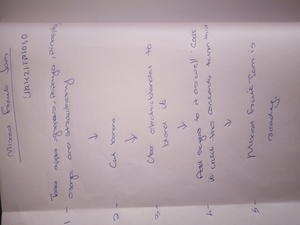 Mixed Fruit Jam
1 - Take apple, grapes, papaya, pineapple,
orange and strawberry
↓
2 - Cut them
↓
3 - Use stick blender to
blend it
↓
4 - Add sugar to it as well. Cook
it until the contents turn
↓
5 - Mixed Fruit Jam is
ready.